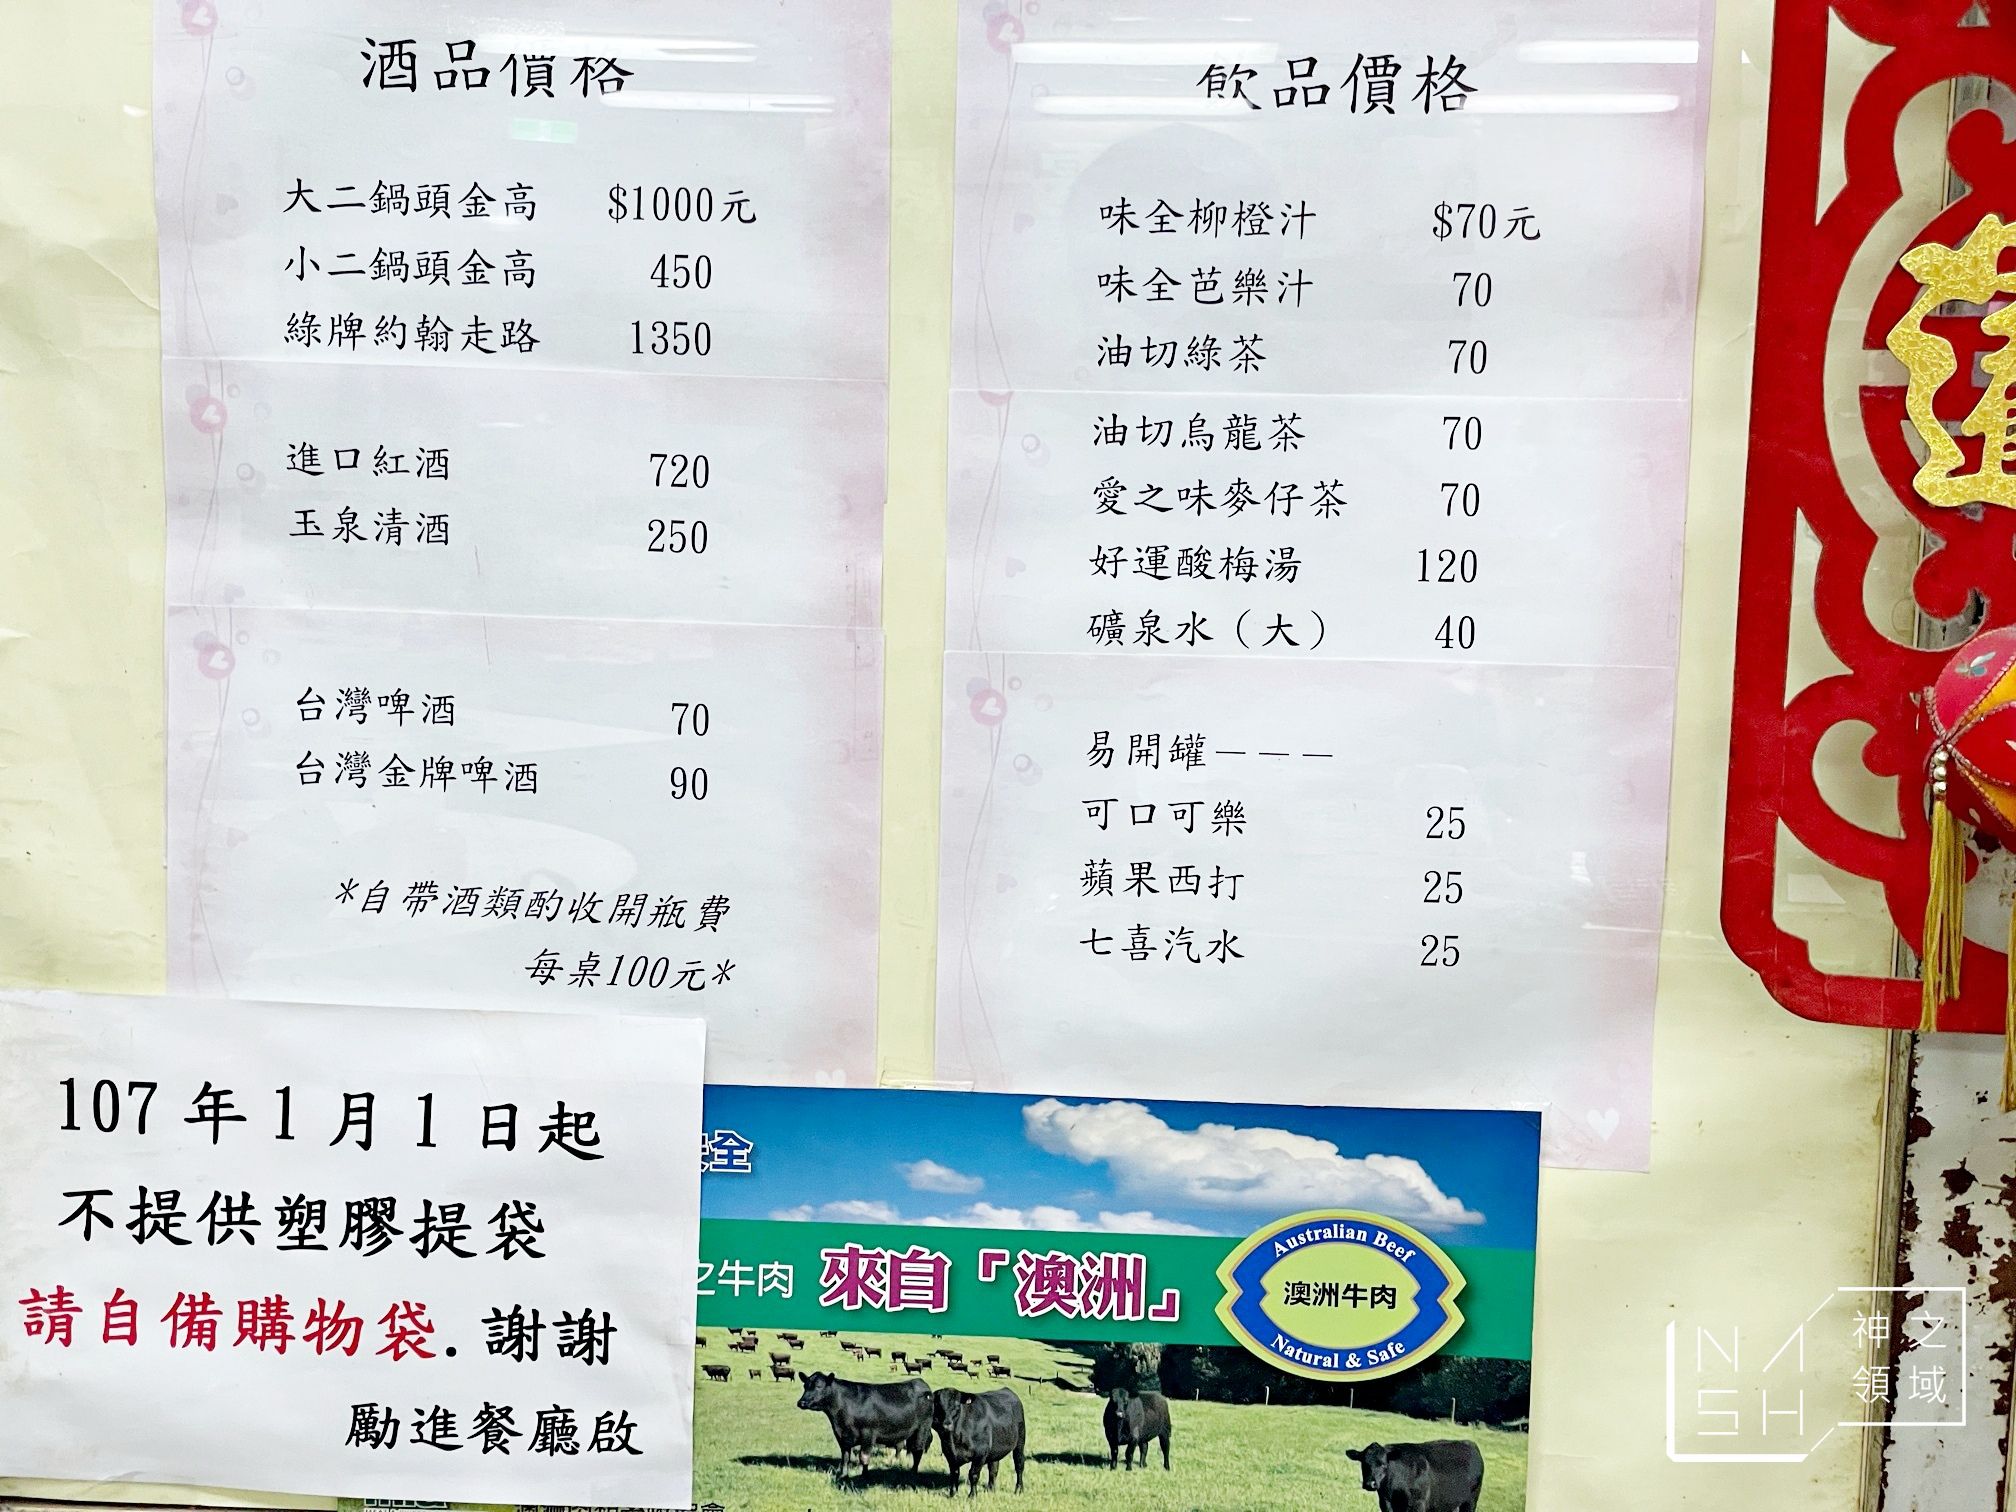 酒品價格
大二鍋頭金高 $1000元
小二鍋頭金高 450
綠牌約翰走路 1350
進口紅酒 720
玉泉清酒 250
台灣啤酒 70
台灣金牌啤酒 90
*自帶酒類酌收開瓶費
每桌100元*
飲品價格
味全柳橙汁 $70元
味全芭樂汁 70
油切綠茶 70
油切烏龍茶 70
愛之味麥仔茶 70
好運酸梅湯 120
礦泉水（大） 40
易開罐－－－
可口可樂 25
蘋果西打 25
七喜汽水 25
107年1月1日起
不提供塑膠提袋
請自備購物袋.謝謝
勵進餐廳啟
全
之牛肉 來自「澳洲」
Australian Beef
澳洲牛肉
Natural & Safe
NASH
神之
領域